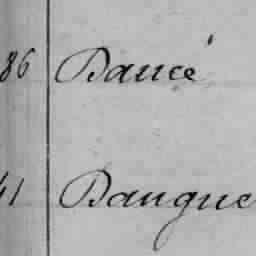 86 Daucé
41 Daugue